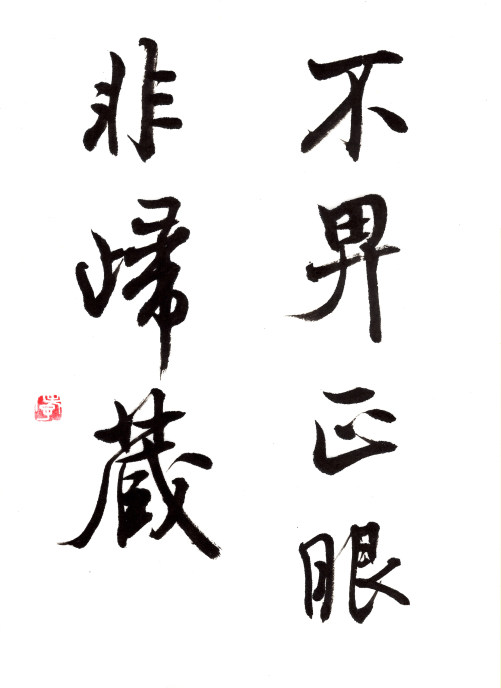 不畀正眼
非帰蔵